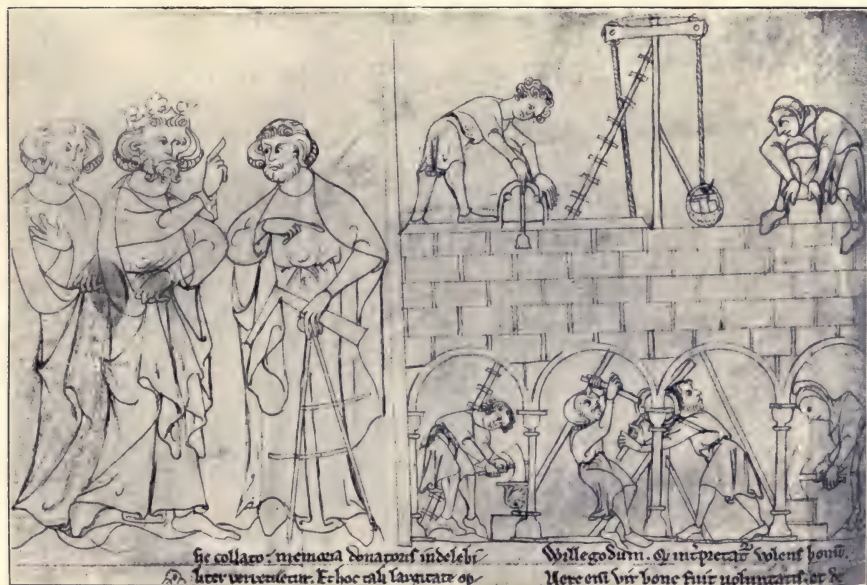 sic collato; memoria donatoris indelebi-
liter perpetuetur. Et hoc tali largitate op-
Willegodum. volens bonū.
Vere eni vir bone fuit voluntatis. et de